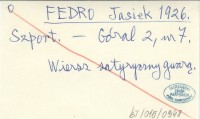 FEDRO Jasiek 1926.
Szport. – Góral 2, m 7.
Wiersz satyryczny gwarą.
bJ/018/0948